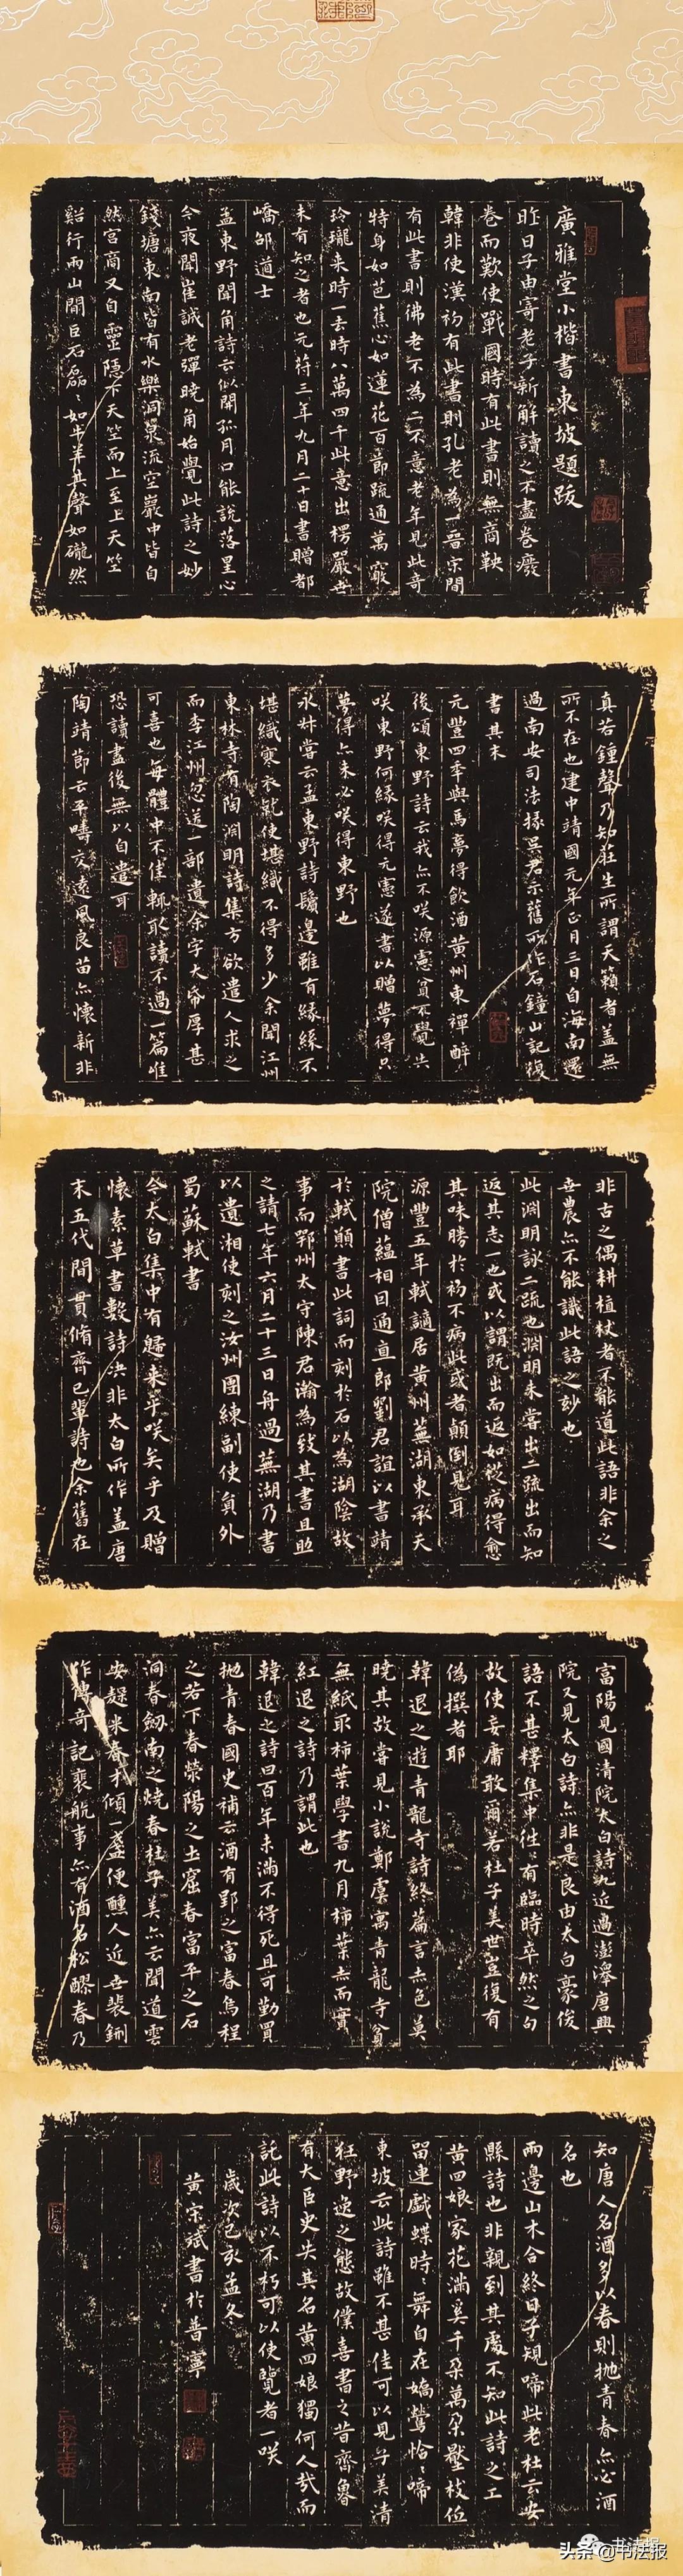 廣雅堂小楷書東坡題跋
昨日子由寄老子新解讀之不盡卷廢
卷而歎使戰國時有此書則無商鞅
韓非使漢初有此書則孔老為一晉宋間
有此書則佛老不為二不意老年見此奇
特身如芭蕉心如蓮花百節疏通萬竅
玲瓏来時一去時八萬四千此意出楞嚴世
未有知之者也元符三年九月二十日書贈都
嶠邵道士
孟東野聞角詩云似開孤月口能說落星心
今夜聞崔誠老彈曉角始覺此詩之妙
錢塘東南皆有水樂洞泉流空巖中皆自
然宫商又自靈隱下天竺而上至上天竺
谿行兩山間巨石磊〻如牛羊其聲如礲然
真若鐘聲乃知莊生所謂天籟者蓋無
所不在也建中靖國元年正月三日自海南還
過南安司法掾吳君示舊所作石鐘山記復
書其末
元豐四年與馬夢得飲酒黄州東禪醉
後頌東野詩云我亦不咲源憲貧不覺失
咲東野何緣咲得元憲遂書以贈夢得只
夢得亦未必咲得東野也
永叔嘗云孟東野詩鬢邊雖有絲絲不
堪織寒衣就使堪織不得多少余聞江州
東林寺有陶淵明詩集方欲遣人求之
而李江州忽送一部遺余字大帋厚甚
可喜也每體中不佳輒取讀不過一篇惟
恐讀盡後無以自遣耳
陶靖節云平疇交遠風良苗亦懷新非
非古之偶耕植杖者不能道此語非余之
世農亦不能識此語之妙也
此淵明詠二疏也淵明未嘗出二疏出而知
返其志一也或以謂既出而返如從病得愈
其味勝於初不病此或者顛倒見耳
源豐五年軾謫居黄州蕪湖東承天
院僧蘊相因通直郎劉君誼以書請
於軾願書此詞而刻於石以為湖陰故
事而鄂州太守陳君瀚為致其書且助
之請七年六月二十三日舟過蕪湖乃書
以遺湘使刻之汝州團練副使員外
蜀蘇軾書
今太白集中有歸来乎咲矣乎及贈
懷素草書數詩决非太白所作蓋唐
末五代間貫脩齊已輩詩也余舊在
富陽見國清院太白詩九近過彭澤唐興
院又見太白詩亦非是良由太白豪俊
語不甚釋集中往〻有臨時卒然之句
故使妄庸敢爾若杜子美世豈復有
偽撰者耶
韓退之遊青龍寺詩終篇言赤色莫
曉其故嘗見小說鄭虔寓青龍寺貧
無紙取柿葉學書九月柿葉赤而實
紅退之詩乃謂此也
韓退之詩曰百年未滿不得死且可勤買
抛青春國史補云酒有郢之富春烏程
之若下春滎陽之土窟春富平之石
洞春劒南之燒春杜子美亦云聞道雲
安麯米春才傾一盞便醺人近世裴鉶
作傳奇記裴航事亦有酒名松醪春乃
知唐人名酒多以春則抛青春亦必酒
名也
兩邊山木合終日子規啼此老杜云安
縣詩也非親到其處不知此詩之工
黄四娘家花滿奚千朶萬朶壓枝低
留連戲蝶時〻舞自在嬌鶯恰〻啼
東坡云此詩雖不甚佳可以見子美清
狂野逸之態故僕喜書之昔齊魯
有大臣史失其名黄四娘獨何人哉而
託此詩以不朽可以使覽者一咲
歲次己亥孟冬
黄宗斌書於普寧
头条@书法报